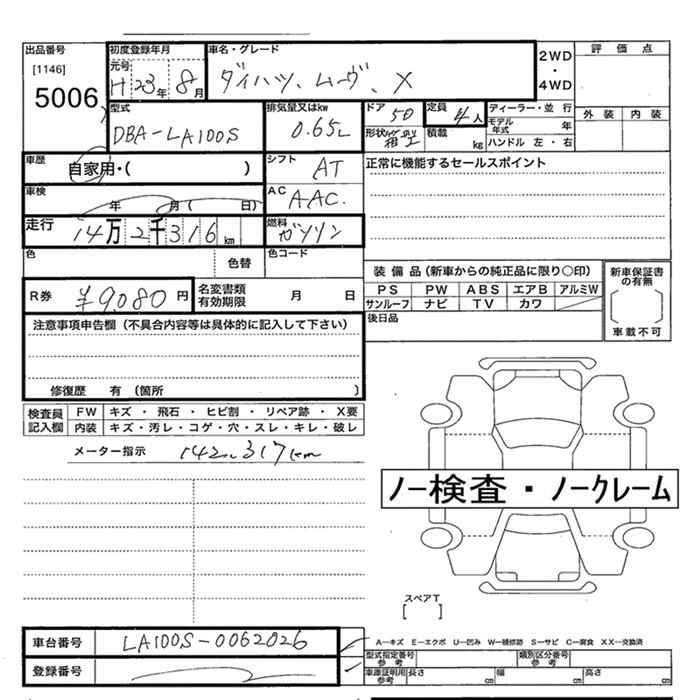 出品番号
[1146]
5006
初度登録年月
元号
H 23年 8月
車名・グレード
ダイハツ、ムーヴ、X
2WD
・
4WD
評価点
外装 内装
型式
DBA-LA100S
排気量又はkw
0.65L
ドア 5D
形状
箱型
定員 4人
積載 kg
ディーラー・並 行
モデル年式 年
ハンドル 左・右
車歴
自家用・( )
シフト
AT
正常に機能するセールスポイント
車検
年 月( 日)
AC
AAC.
走行
14万2千316km
燃料
ガソリン
色
色替
色コード
R券 ¥9,080円
名変書類
有効期限 月 日
装備品(新車からの純正品に限り○印)
PS PW ABS エアB アルミW
サンルーフ ナビ TV カワ
新車保証書
の有無
車載不可
後日品
注意事項申告欄(不具合内容等は具体的に記入して下さい)
修復歴 有(箇所 )
検査員
記入欄
FW キズ・飛石・ヒビ割・リペア跡・X要
内装 キズ・汚レ・コゲ・穴・スレ・キレ・破レ
メーター指示 142,317km
ノー検査・ノークレーム
スペアT
[ ]
車台番号 LA100S-0062026
登録番号
A-キズ E-エクボ U-凹み W-補修跡 S-サビ C-腐食 XX-交換済
型式指定番号
参考
類別区分番号
参考
車庫証明用
参考
長さ cm 幅 cm 高さ cm